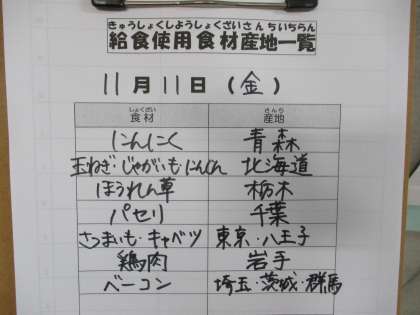 きゅうしょくしようしょくざいさんちいちらん
給食使用食材産地一覧
11月11日(金)
しょくざい さんち
食材 産地
にんにく 青森
玉ねぎ・じゃがいも・にんじん 北海道
ほうれん草 栃木
パセリ 千葉
さつまいも・キャベツ 東京・八王子
鶏肉 岩手
ベーコン 埼玉・茨城・群馬